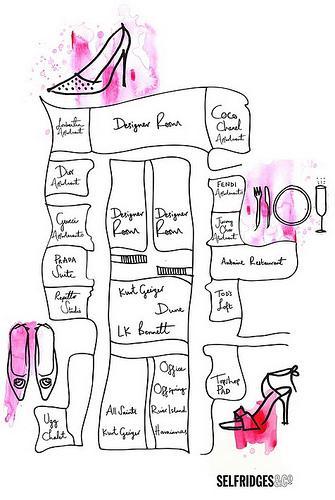 Louboutin
Apartment
Designer Room
Coco
Chanel
Apartment
Dior
Apartment
Gucci
Apartments
PRADA
Suite
Repetto
Studio
Designer
Room
Designer
Room
FENDI
Apartments
Jimmy
Choo
Apartment
Antoine Restaurant
Kurt Geiger
Dune
LK Bennett
Tod's
Loft
Topshop
PAD
Office
Offspring
River Island
Havaianas
All Saints
Kurt Geiger
Ugg
Chalet
SELFRIDGES&Co